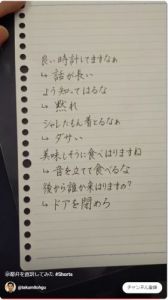 良い時計してますなぁ
↳ 話が長い
よう知ってはるな
↳ 黙れ
シャレたもん着とるなぁ
↳ ダサい
美味しそうに食べはりますね
↳ 音を立てて食べるな
後から誰か来はりますの?
↳ ドアを閉めろ
都弁を直訳してみた #Shorts
@takumitohgu
チャンネル登録